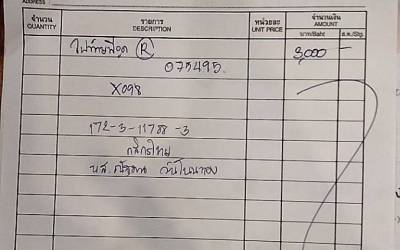 ADDRESS
จำนวน รายการ หน่วยละ จำนวนเงิน
QUANTITY DESCRIPTION UNIT PRICE AMOUNT
บาท/Baht ส.ต./Stg.
R 3,000 -
075495.
X098
172-3-11788-3
กสิกรไทย
น.ส.